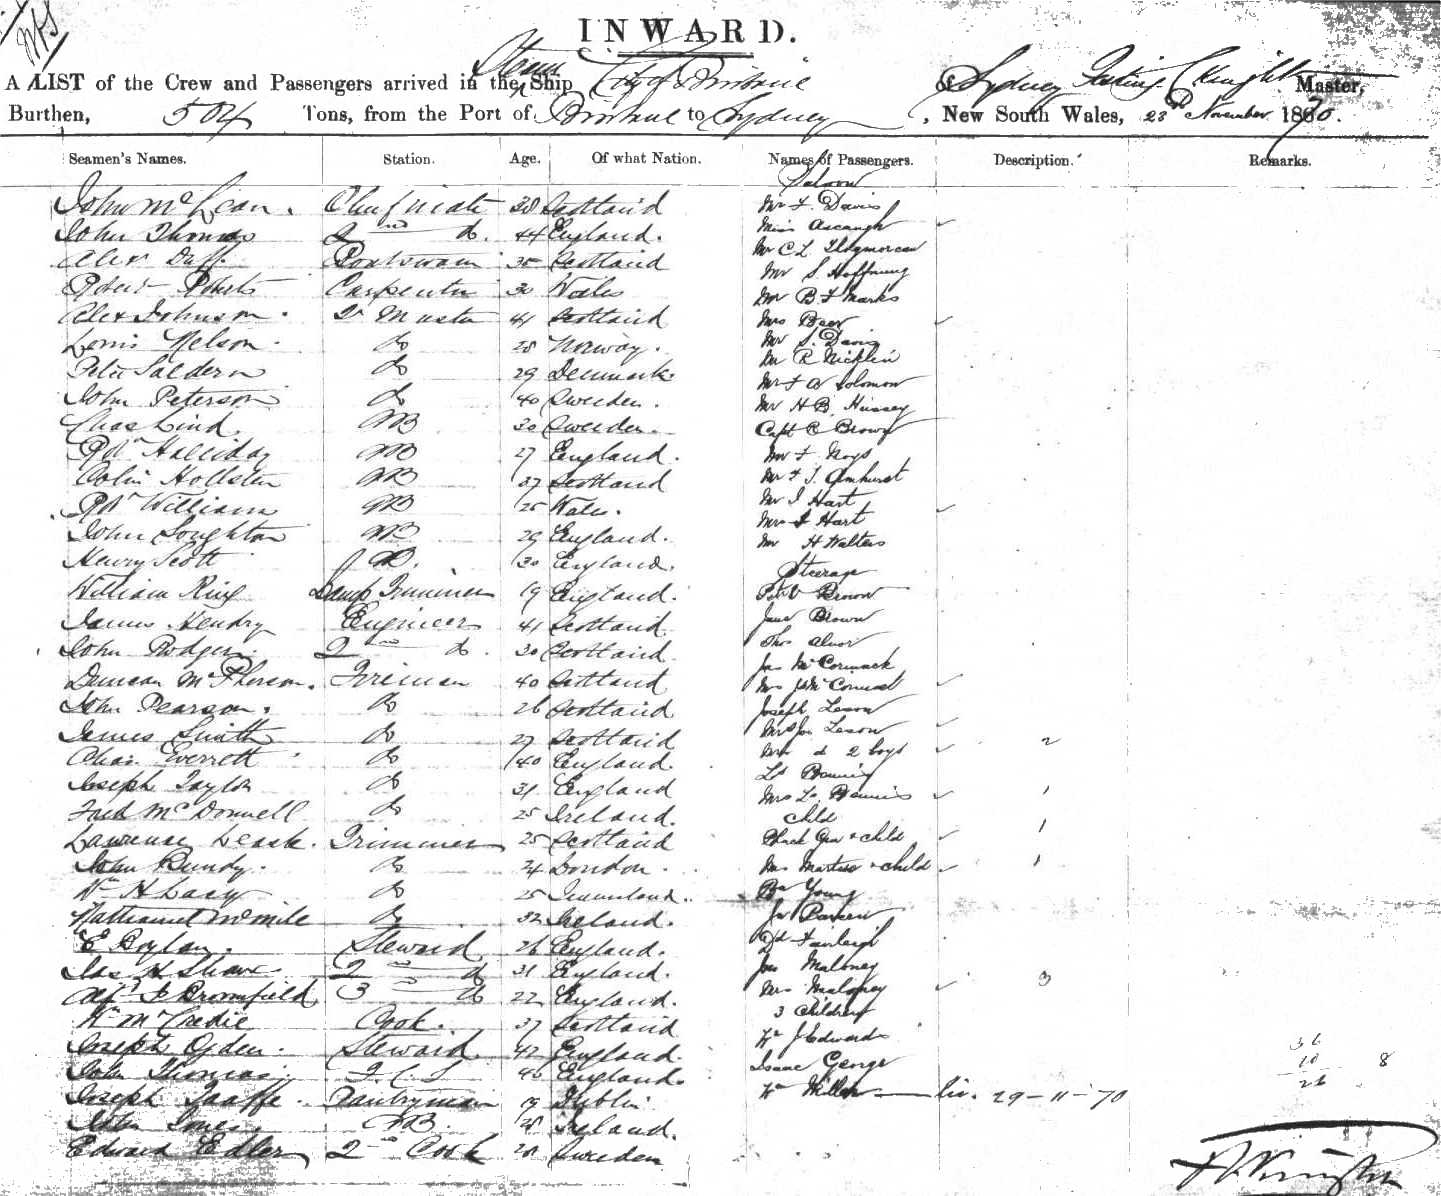 INWARD.
A LIST of the Crew and Passengers arrived in the Steam Ship City of Brisbane of Sydney Knight Master,
Burthen, 504 Tons, from the Port of Brisbane to Sydney, New South Wales, 23rd November 1870.
Seamen's Names. Station. Age. Of what Nation. Names of Passengers. Description. Remarks.
Saloon
John McLean. Chief mate 38 Scotland Mr F. Davis
John Thomas 2nd do. 44 England. Miss Ascaugh
Alex Duff. Boatswain 35 Scotland Mr C L
Robert Roberts Carpenter 30 Wales Mr S Hoffnung
Mr B F Marks
Alex Johnson. Qr Master 41 Scotland Mrs Beer
Louis Nelson. Do 28 Norway. Mr S. Davis
Peter Saldern Do 29 Denmark. Mr R Nicklin
Mr F A Solomon
John Peterson Do 40 Sweden. Mr H B. Hussey
Chas Lind. AB 30 Sweden. Capt R Brown
Rt Halliday AB 27 England. Mr F Noys
Colin Hollsten AB 37 Scotland Mr F J Amhurst
Rt William AB 25 Wales. Mr I Hart
Mrs I Hart
John Loughton AB 29 England. Mr H Walters
Henry Scott AB. 30 England. Steerage
William King Lamp Trimmer 19 England. Brown
James Hendry Engineer 41 Scotland Jane Brown
John Rodgers. 2nd do. 30 Scotland Thos
Jas McCormack
Duncan McPherson. Fireman 40 Scotland Mrs Js McCormack
John Pearson. Do 26 Scotland Joseph Leson
James Smith Do 27 Scotland Mrs Jos Leson
Chas Everett Do 40 England. Mrs & 2 boys 2
Joseph Taylor Do 31 England Mrs 1
Fred McDonnell Do 25 Ireland. Child
Lawrence Leask. Trimmer 25 Scotland & child 1
John Bundy. Do 24 London. Mrs & child 1
Wm H Lacy Do 25 Queensland. Young
Nathaniel Do 32 Ireland.
E Boylan. Steward 26 England. Fairleigh
Jas H Shaw 2nd do 31 England. Jas Maloney
Alfd F Bromfield 3rd do 22 England. Mrs Maloney 3
3 Children
Wm McCredie Cook. 37 Scotland Wm J Edwards
Joseph Ogden. Steward 42 England. Isaac George 36
John Thomas. F. C. S 40 England. 10 8
Joseph Taaffe. Pantryman 19 Dublin Wm Miller 29-11-70 26
John Jones. AB. 28 Ireland.
Edward Edler 2nd Cook 28 Sweden
Knight